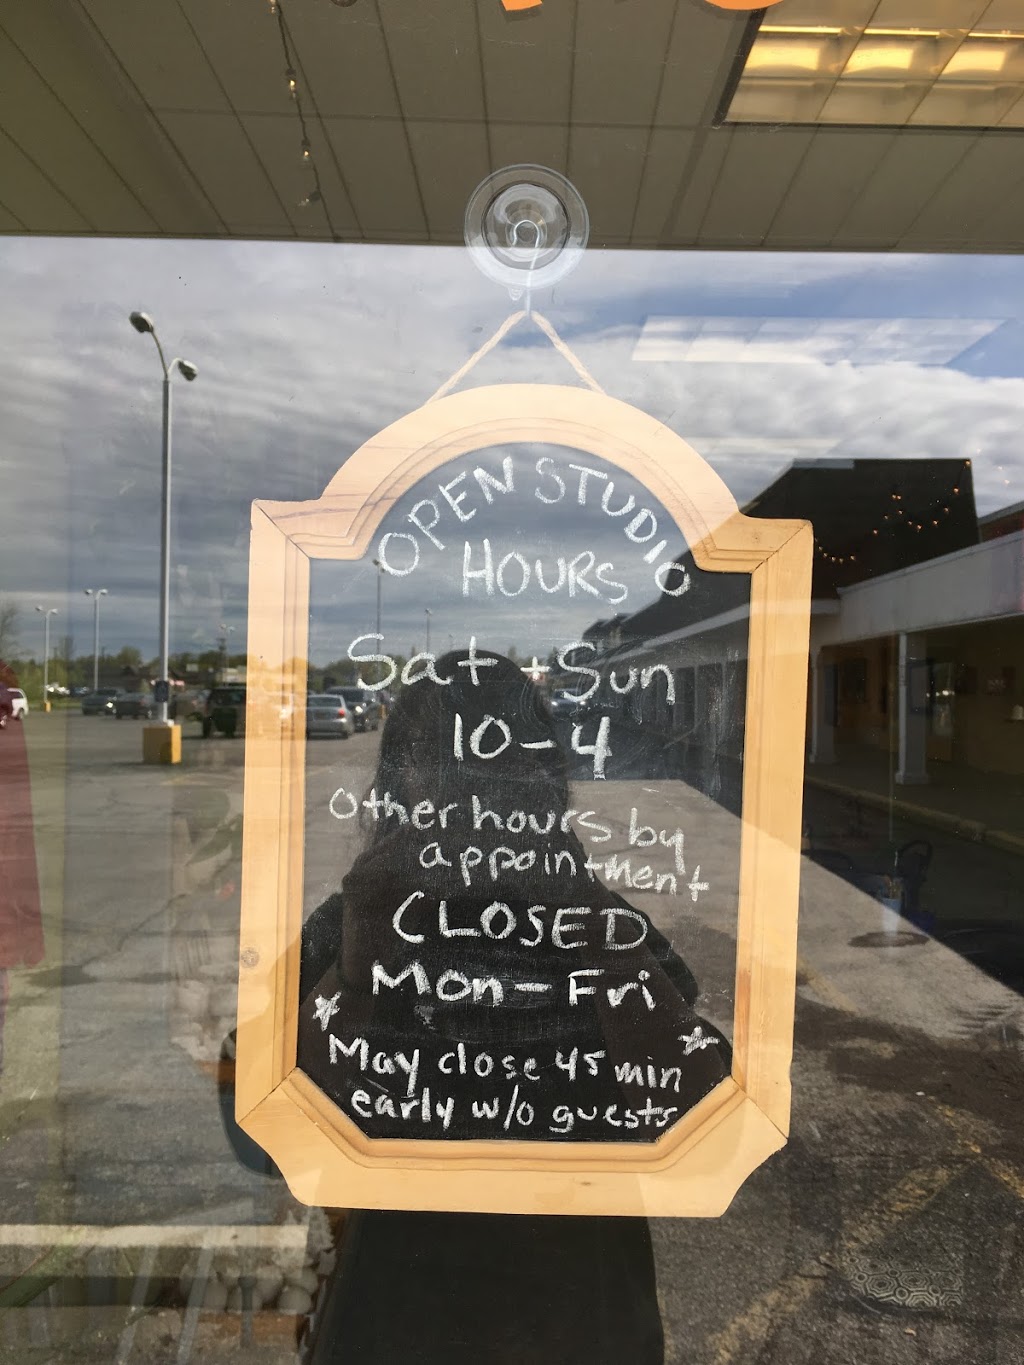 OPEN STUDIO
HOURS
Sat + Sun
10-4
other hours by
appointment
CLOSED
Mon-Fri
May close 45 min
early w/o guests